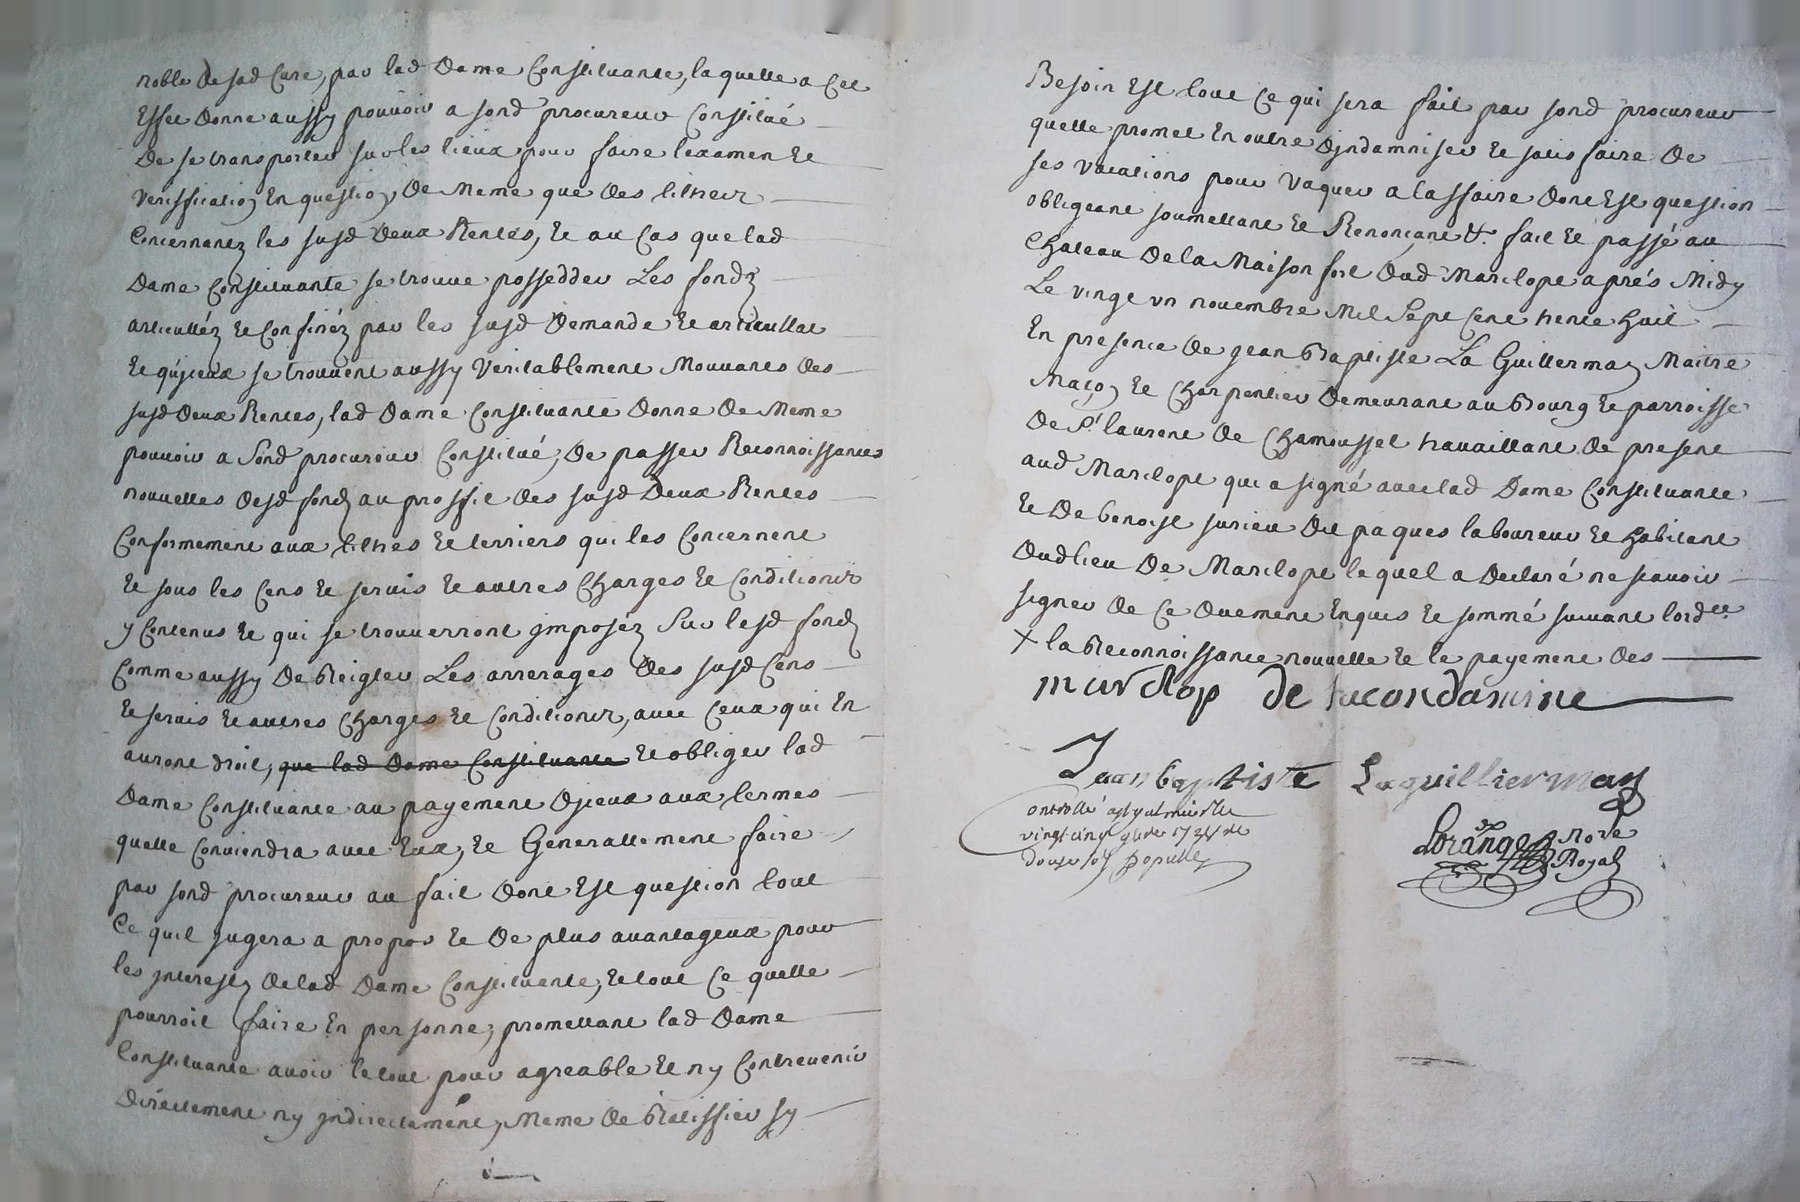 noble de sad Cure, par lad Dame Constituante, laquelle a Cet
Effet donne aussy pouvoir a sond procureur Constitué
De se transporter sur les lieux pour faire lexamen Et
Veriffication En question, De Meme que des tiltres
Concernantz les susd Deux Rentes, Et au Cas que lad
Dame Constituante se trouve possedder Les fondz
articulléz Et Confinéz par les susd Demande Et articullat
Et quyceux se trouvent aussy Veritablement Mouvants des
susd Deux Rentes, lad Dame Constituante Donne De Meme
pouvoir a Sond procureur Constitué, De passer Reconnoissances
nouvelles desd fondz au proffit des susd Deux Rentes
Conformement aux tiltres Et terriers qui les Concernent
Et sous les Cens Et servis Et autres Charges Et Conditions
y Contenus Et qui se trouverront jmposéz Sur lesd fondz
Comme aussy De Reigler Les arrerages des susd Cens
Et servis Et autres Charges Et Conditions, avec Ceux qui En
auront droit, que lad Dame Constituante Et obliger lad
Dame Constituante au payement Djceux aux termes
quelle Conviendra avec Eux, Et Generallement faire
par sond procureur au fait dont Est question tout
Ce quil jugera a propos Et De plus avantageux pour
les jnterestz De lad Dame Constituante, Et tout Ce quelle
pourroit faire En personne, promettant lad Dame
Constituante avoir le tout pour agreable Et ny Contrevenir
directement ny jndirectement, Meme de Ratiffier sy
Besoin Est tout Ce qui sera fait par sond procureur
quelle promet En outre Djndamniser Et satisfaire De
ses vacations pour vaquer a laffaire dont Est question
obligeant soumettant Et Renonçant &. fait Et passé au
Chateau De la Maison fort Dud Marclopt aprés Midy
Le vingt un novembre Mil Sept Cent trente huit
En presence De jean Baptiste La Guillermaz Maitre
Maçon Et Charpentier Demeurant au Bourg Et parroisse
De St laurent De Chamousset travaillant De present
aud Marclopt qui a signé avec lad Dame Constituante
Et De benoist surieu Dit paques laboureur Et habitant
Dudlieu De Marclopt lequel a Declaré ne scavoir
signer De Ce Duement Enquis Et sommé suivant lord.ce
+ la Reconnoissance nouvelle Et le payement des
marclop de lacondamine
Jean baptiste Laguilliermaz
Controllé a st galmier le
vingt cinq 9bre 1738 Rt
douze sols
Lorange Nore
Royal